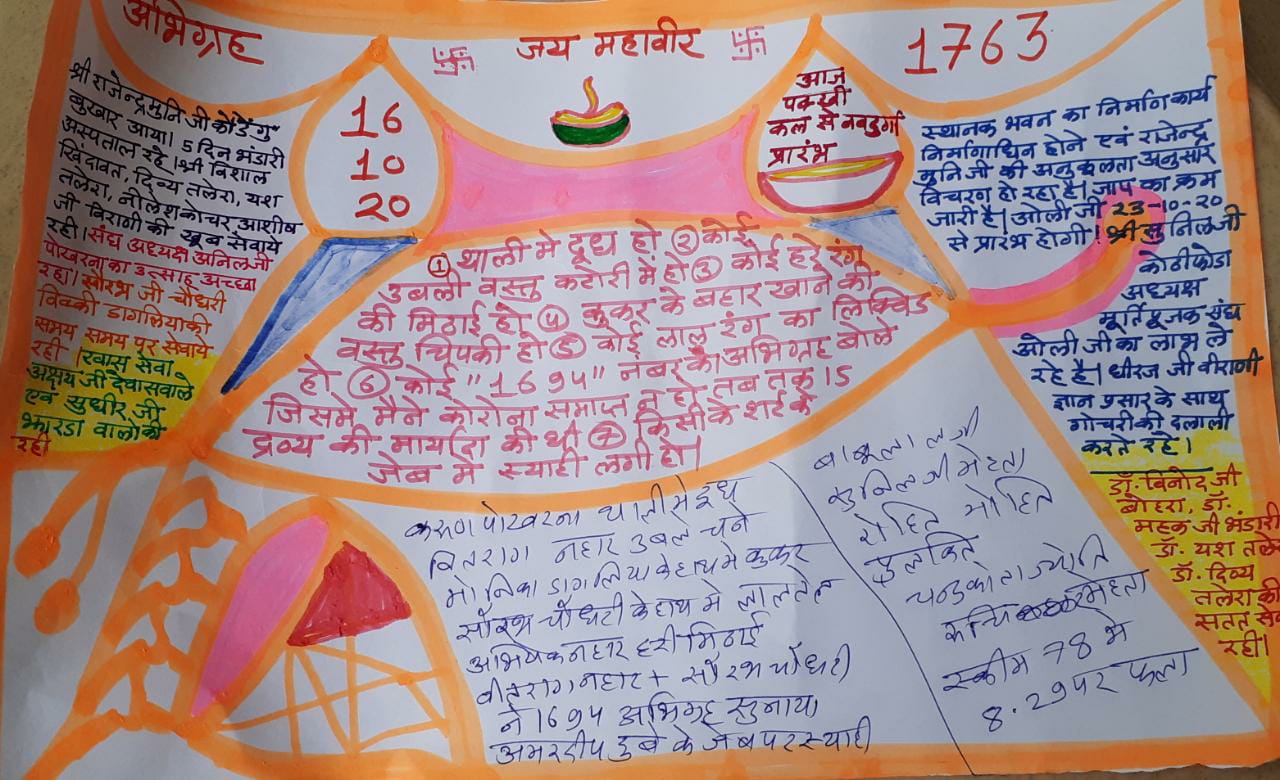 अभिग्रह
जय महावीर
1763
श्री राजेन्द्रमुनि जी को डेंगु
बुखार आया। 5 दिन भंडारी
अस्पताल रहे। श्री विशाल
खिंदावत, दिव्य तलेरा, यश
तलेरा, नीलेश कोचर आशीष
जी विराणी की खूब सेवाये
रही। संघ अध्यक्ष अनिलजी
पोखरना का उत्साह अच्छा
रहा। सौरभ जी चौधरी
विक्की डागलिया की
समय समय पर सेवाये
रही। खास सेवा
अक्षय जी देवासवाले
एवं सुधीर जी
झारडा वालो की
रही
16
10
20
आज
पक्खी
कल से नवदुर्गा
प्रारंभ
स्थानक भवन का निर्माण कार्य
निर्माणाधिन होने एवं राजेन्द्र
मुनि जी की अनुकूलता अनुसार
विचरण हो रहा है। जाप का क्रम
जारी है। ओली जी 23-10-20
से प्रारंभ होगी। श्री सुनिलजी
कोठीफोडा
अध्यक्ष
मूर्तिपूजक संघ
ओली जी का लाभ ले
रहे है। धीरज जी वीराणी
ज्ञान प्रसार के साथ
गोचरी की दलाली
करते रहे।
डॉ. विनोद जी
बोहरा, डॉ.
महक जी भंडारी
डॉ. यश तले
डॉ. दिव्य
तलेरा की
सतत सेव
रही।
① थाली मे दूध हो ② कोई
उबली वस्तु कटोरी में हो ③ कोई हरे रंग
की मिठाई हो ④ कुकर के बहार खाने की
वस्तु चिपकी हो ⑤ कोई लाल रंग का लिक्विड
हो ⑥ कोई "1694" नंबर का अभिग्रह बोले
जिसमे मैने कोरोना समाप्त न हो तब तक 15
द्रव्य की मार्यादा की थी ⑦ किसी के शर्ट के
जेब मे स्याही लगी हो।
करुणा पोखरना थाली मे दुध
वितराग नहार उबले चने
मोनिका डागलिया के हाथ मे कुकर
सौरभ चौधरी के हाथ मे लाल तेल
अभिषेक नहार हरी मिठाई
वीतराग नहार + सौरभ चौधरी
ने 1694 अभिग्रह सुनाया
अमरदीप दुबे के जेब पर स्याही
बाबूलालजी
सुनिल जी मेहता
रोहित मोहित
पुलकित
चन्द्रकांता ज्योति
मेहता
स्कीम 78 मे
8.29 पर फला